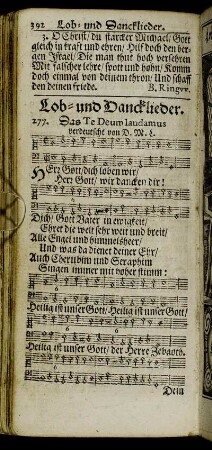 392 Lob- und Dancklieder.
3. O Christ/ du starcker Michael/ Gott
gleich in krafft und ehren/ Hilf doch den
gen Israel/ Die man thut hoch versehren
Mit falscher lehre/ spott und hohn/ Komm
doch einmal von deinem thron/ Und schaff
den deinen friede. B. Ringvv.
Lob- und Dancklieder.
277. Das Te Deum laudamus
verdeutscht von D. M. L.
HErr Gott/ dich loben wir/
Herr Gott/ wir dancken dir!
Dich/ Gott Vater in ewigkeit/
Ehret die welt sehr weit und breit/
Alle Engel und himmelsheer/
Und was da dienet deiner Ehr/
Auch Cherubim und Seraphim
Singen immer mit hoher stimm:
Heilig ist unser Gott/ Heilig ist unser Gott/
Heilig ist unser Gott/ der Herre Zebaoth.
Dein